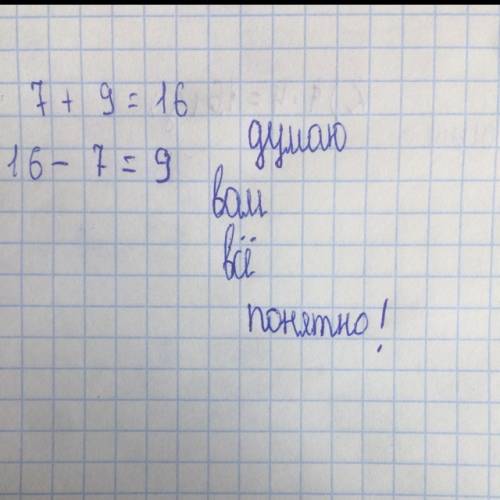 7 + 9 = 16
16 - 7 = 9
думаю
вам
всё
понятно!